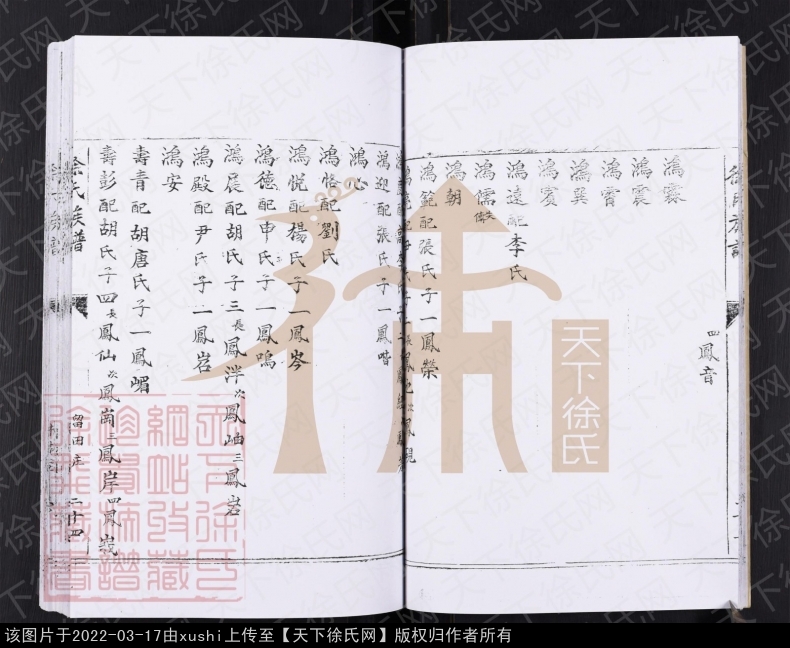 四鳳音
鴻霖
鴻震
鴻賓
鴻巽
鴻賓
鴻遠配李氏
鴻儒
鴻朝
鴻範配張氏子一鳳榮
鴻迎配張氏子一鳳喈
鴻心
鴻恪配劉氏
鴻悅配楊氏子一鳳岑
鴻德配申氏子一鳳鳴
鴻展配胡氏子三長鳳泮次鳳岫三鳳岩
鴻殿配尹氏子一鳳岩
鴻安
壽青配胡唐氏子一鳳嵋
壽彭配胡氏子四長鳳仙次鳳崗三鳳岸四鳳峩
徐氏族譜
留田庄
二十四
天下徐氏
天下徐氏网
该图片于2022-03-17由xushi上传至【天下徐氏网】版权归作者所有